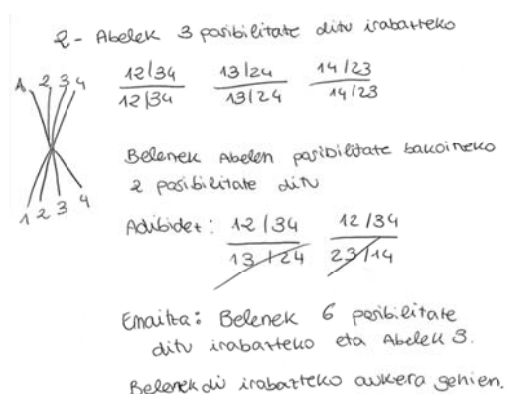 2- Abelek 3 posibilitate ditu irabazteko
1 2 3 4
12/34 13/24 14/23
12/34 13/24 14/23
1 2 3 4
Belenek Abelen posibilitate bakoineko
2 posibilitate ditu
Adibidez: 12/34 12/34
13/24 23/14
Emaitza: Belenek 6 posibilitate
ditu irabazteko eta Abelek 3.
Belenek du irabazteko aukera gehien.